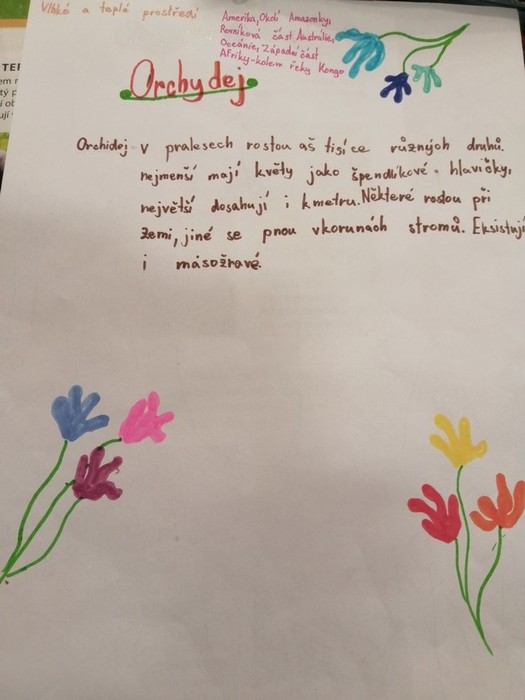 Vlhké a teplé prostředí
Amerika, Okolí Amazonky,
Rovníková část Austrálie,
Oceánie, Západní část
Afriky-kolem řeky Kongo
Orchydej
Orchidej v pralesech rostou aš tisíce různých druhů.
nejmenší mají květy jako špendlíkové hlavičky,
největší dosahují i kmetru. Některé rostou při
zemi, jiné se pnou vkorunách stromů. Eksistují
i másožravé.